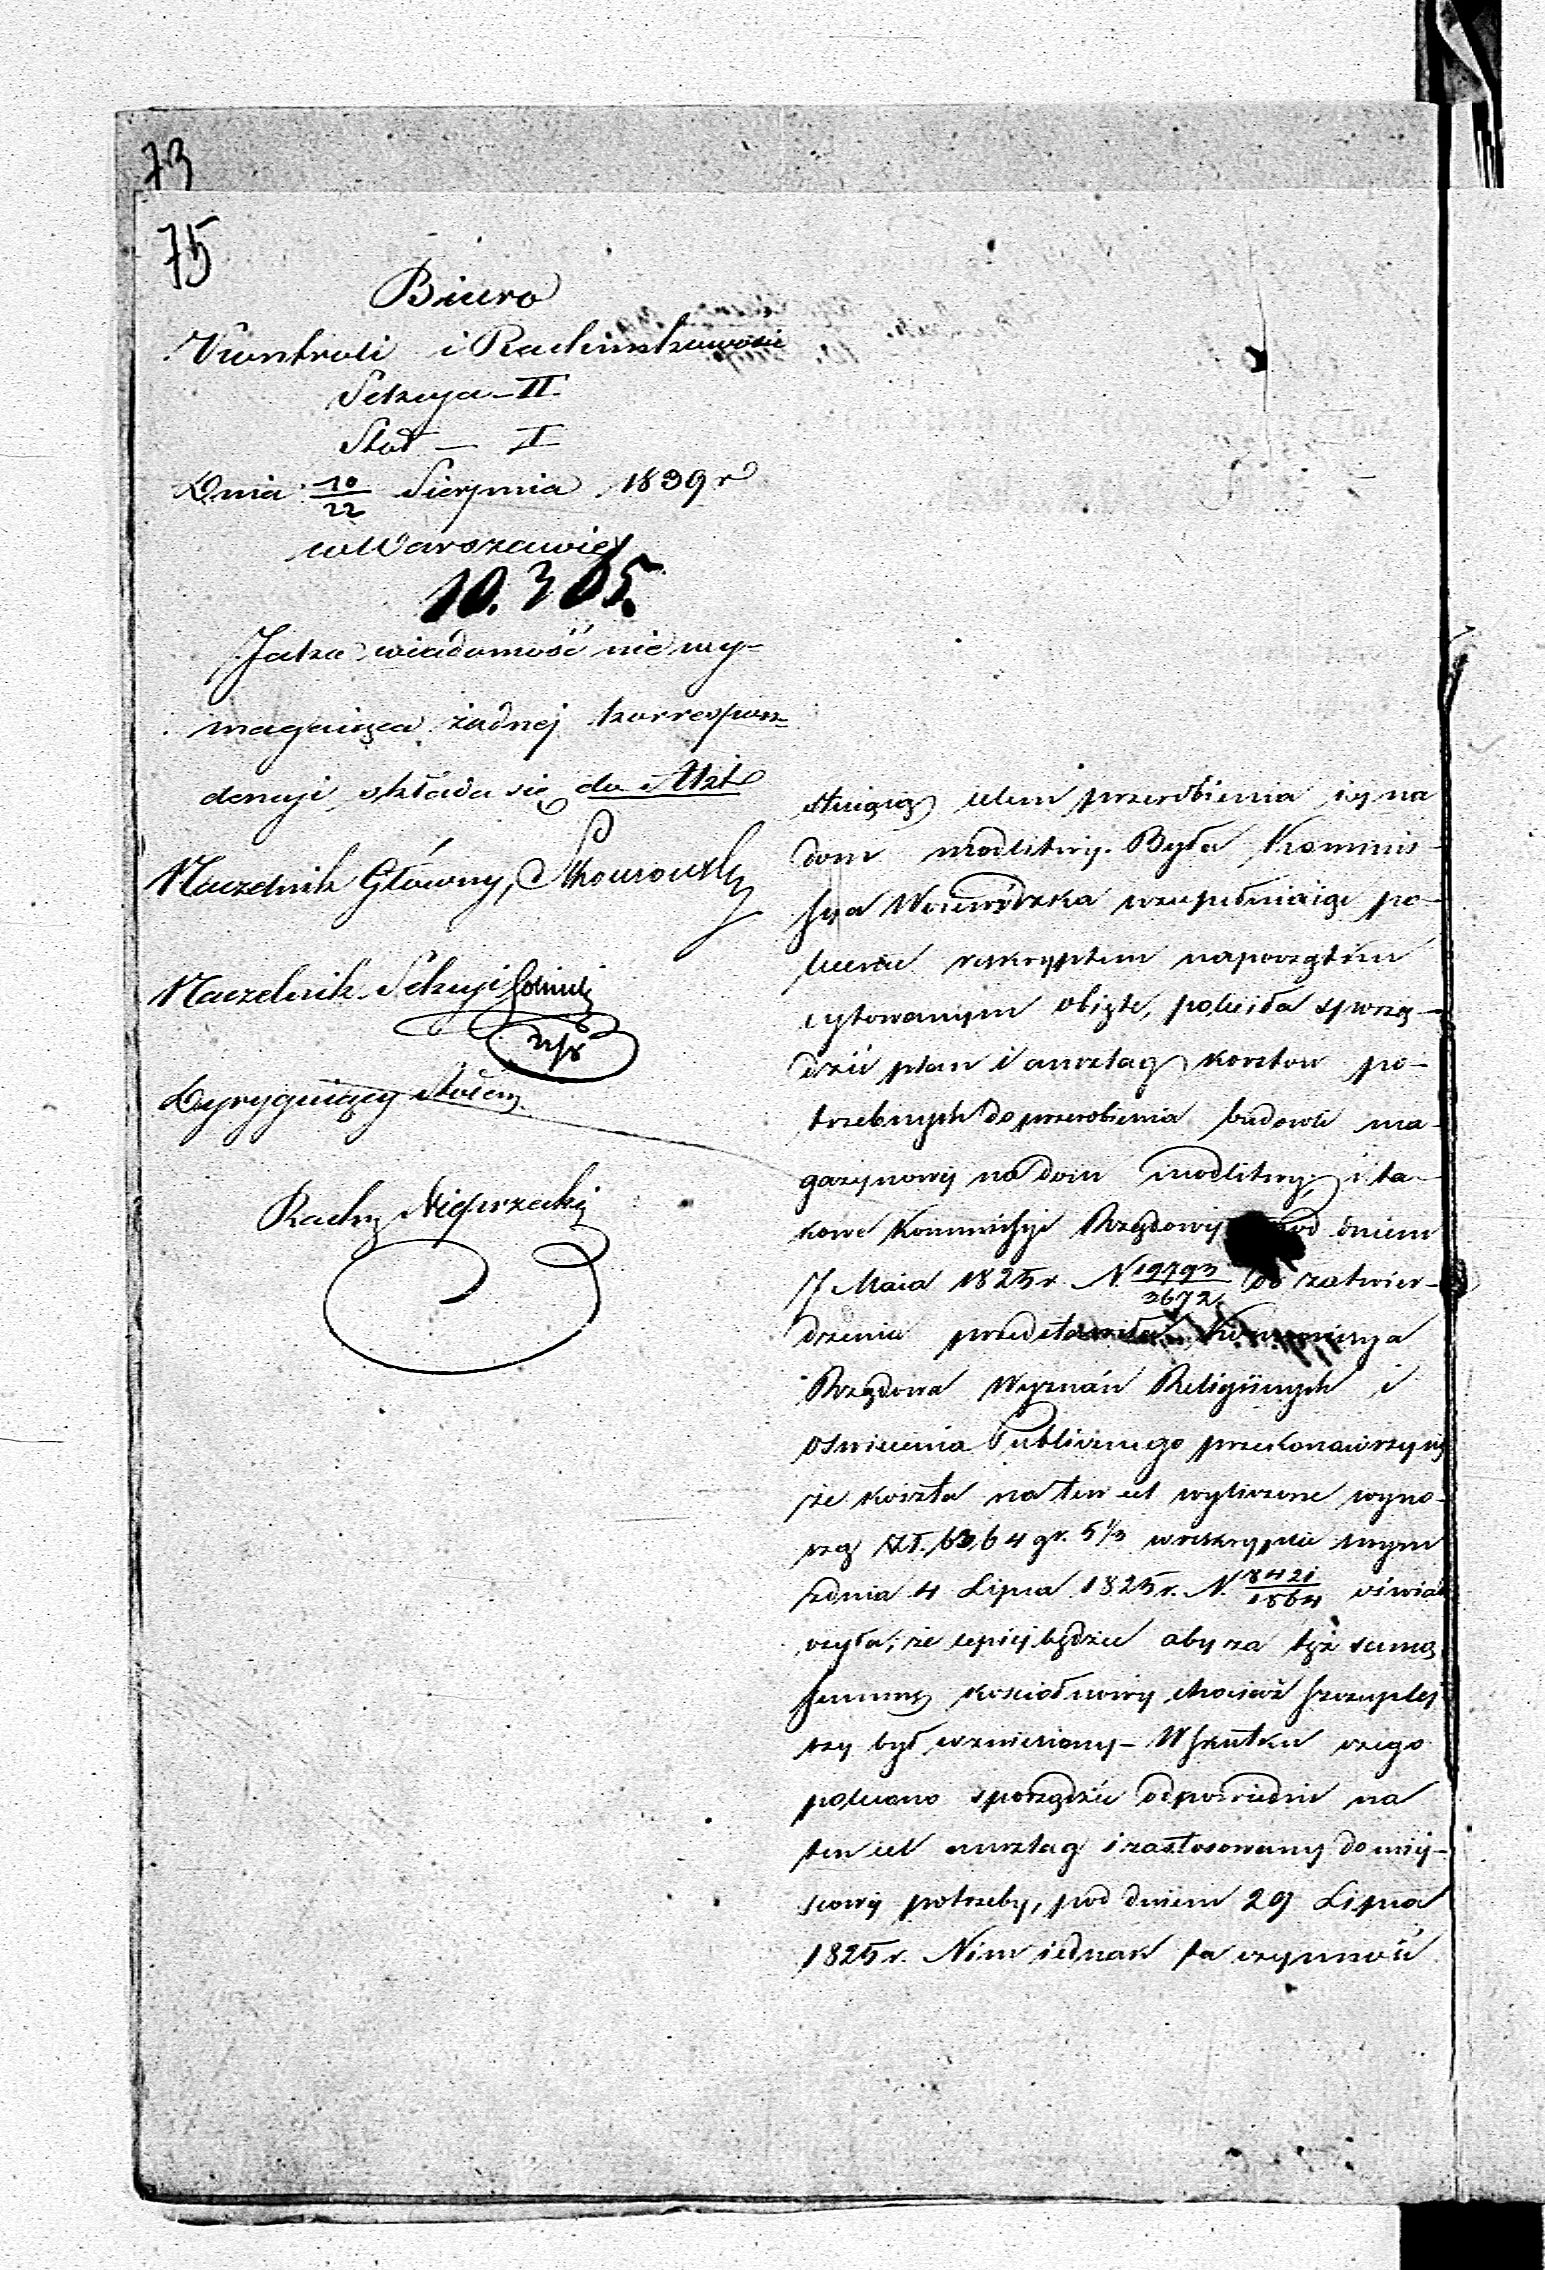 73
75
Biuro
Kontroli i Rachunkowości
Sekcya - II
Stół - I
Dnia 10/22 Sierpnia 1839 r
w Warszawie
10.305.
Jako wiadomość nie wy-
magaiąca żadnej korrespon-
dencyi składa się do Akt
Naczelnik Główny,
Naczelnik Sekcyi
Dyryguiący Stołem
Radny
celem przerobienia iey na
dom modlitwy. Była Kommis-
sya Woiewódzka wzupełniaiąc po-
lecenie reskryptem napoczątku
cytowanym obięte, poleciła sporzą-
dzić plan i anszlag kosztow po-
trzebnych do przerobienia budowli ma-
gazynowey na dom modlitwy, i ta-
kowe Kommissyi Rządowey pod dniem
7 Maia 1825 r. N. 19793/3672 do zatwier-
dzenia przedstawiła, Kommissya
Rządowa Wyznań Religiinych i
Oswiecenia Publicznego przekonawszy się
że koszta na ten cel wyliczone wyno-
szą Zł. 6364 gr. 5 1/3 w reskrypcie swym
z dnia 4 Lipca 1825 r. N. 8421/1864 oświad
czyła, że lepiej będzie aby za tęż samą
summę kościoł nowy chociaż szczupley-
szy był wzniesiony - W skutku czego
polecono sporządzić odpowiedni na
ten cel anszlag i zastosowany do miey-
scowey potrzeby, pod dniem 29 Lipca
1825 r. Nim iednak ta czynność